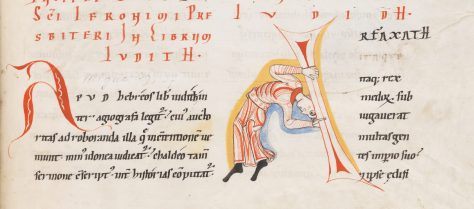 SCI IERONIMI PRE
SBITERI IN LIBRUM
IUDITH.
IUDIDH.
APUD hebreos lib iudith in
ter agiografa legit: cui auctori
tas ad roboranda illa q in ctentione ue
niunt min idonea iudicat: chaldeo tam
sermone cscript int historias cputat:
ARFAXATH
ITAQUE
itaq; rex
medox sub
iugauerat
multas gen
tes impio suo:
ipse edifi